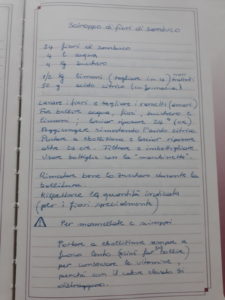 Sciroppo di fiori di sambuco
24 fiori di sambuco
4 l acqua
4 kg zucchero
1/2 kg limoni (tagliare in 4)
50 g acido citrico (in farmacia)
Lavare i fiori e tagliare i rametti (amari)
Far bollire acqua, fiori, zucchero e
limoni, lasciar riposare 24 ore
Aggiungere rimestando l'acido citrico
Portare a ebollizione e lasciar riposare
altre 24 ore. Filtrare e imbottigliare
Usare bottiglie con la "macchinetta".
Rimestare bene lo zucchero durante la
bollitura
Rispettare la quantità indicata
(per i fiori specialmente)
Per marmellate e sciroppi
Portare a ebollizione sempre a
fuoco lento
per conservare le vitamine,
perché con il calore
distruggono.